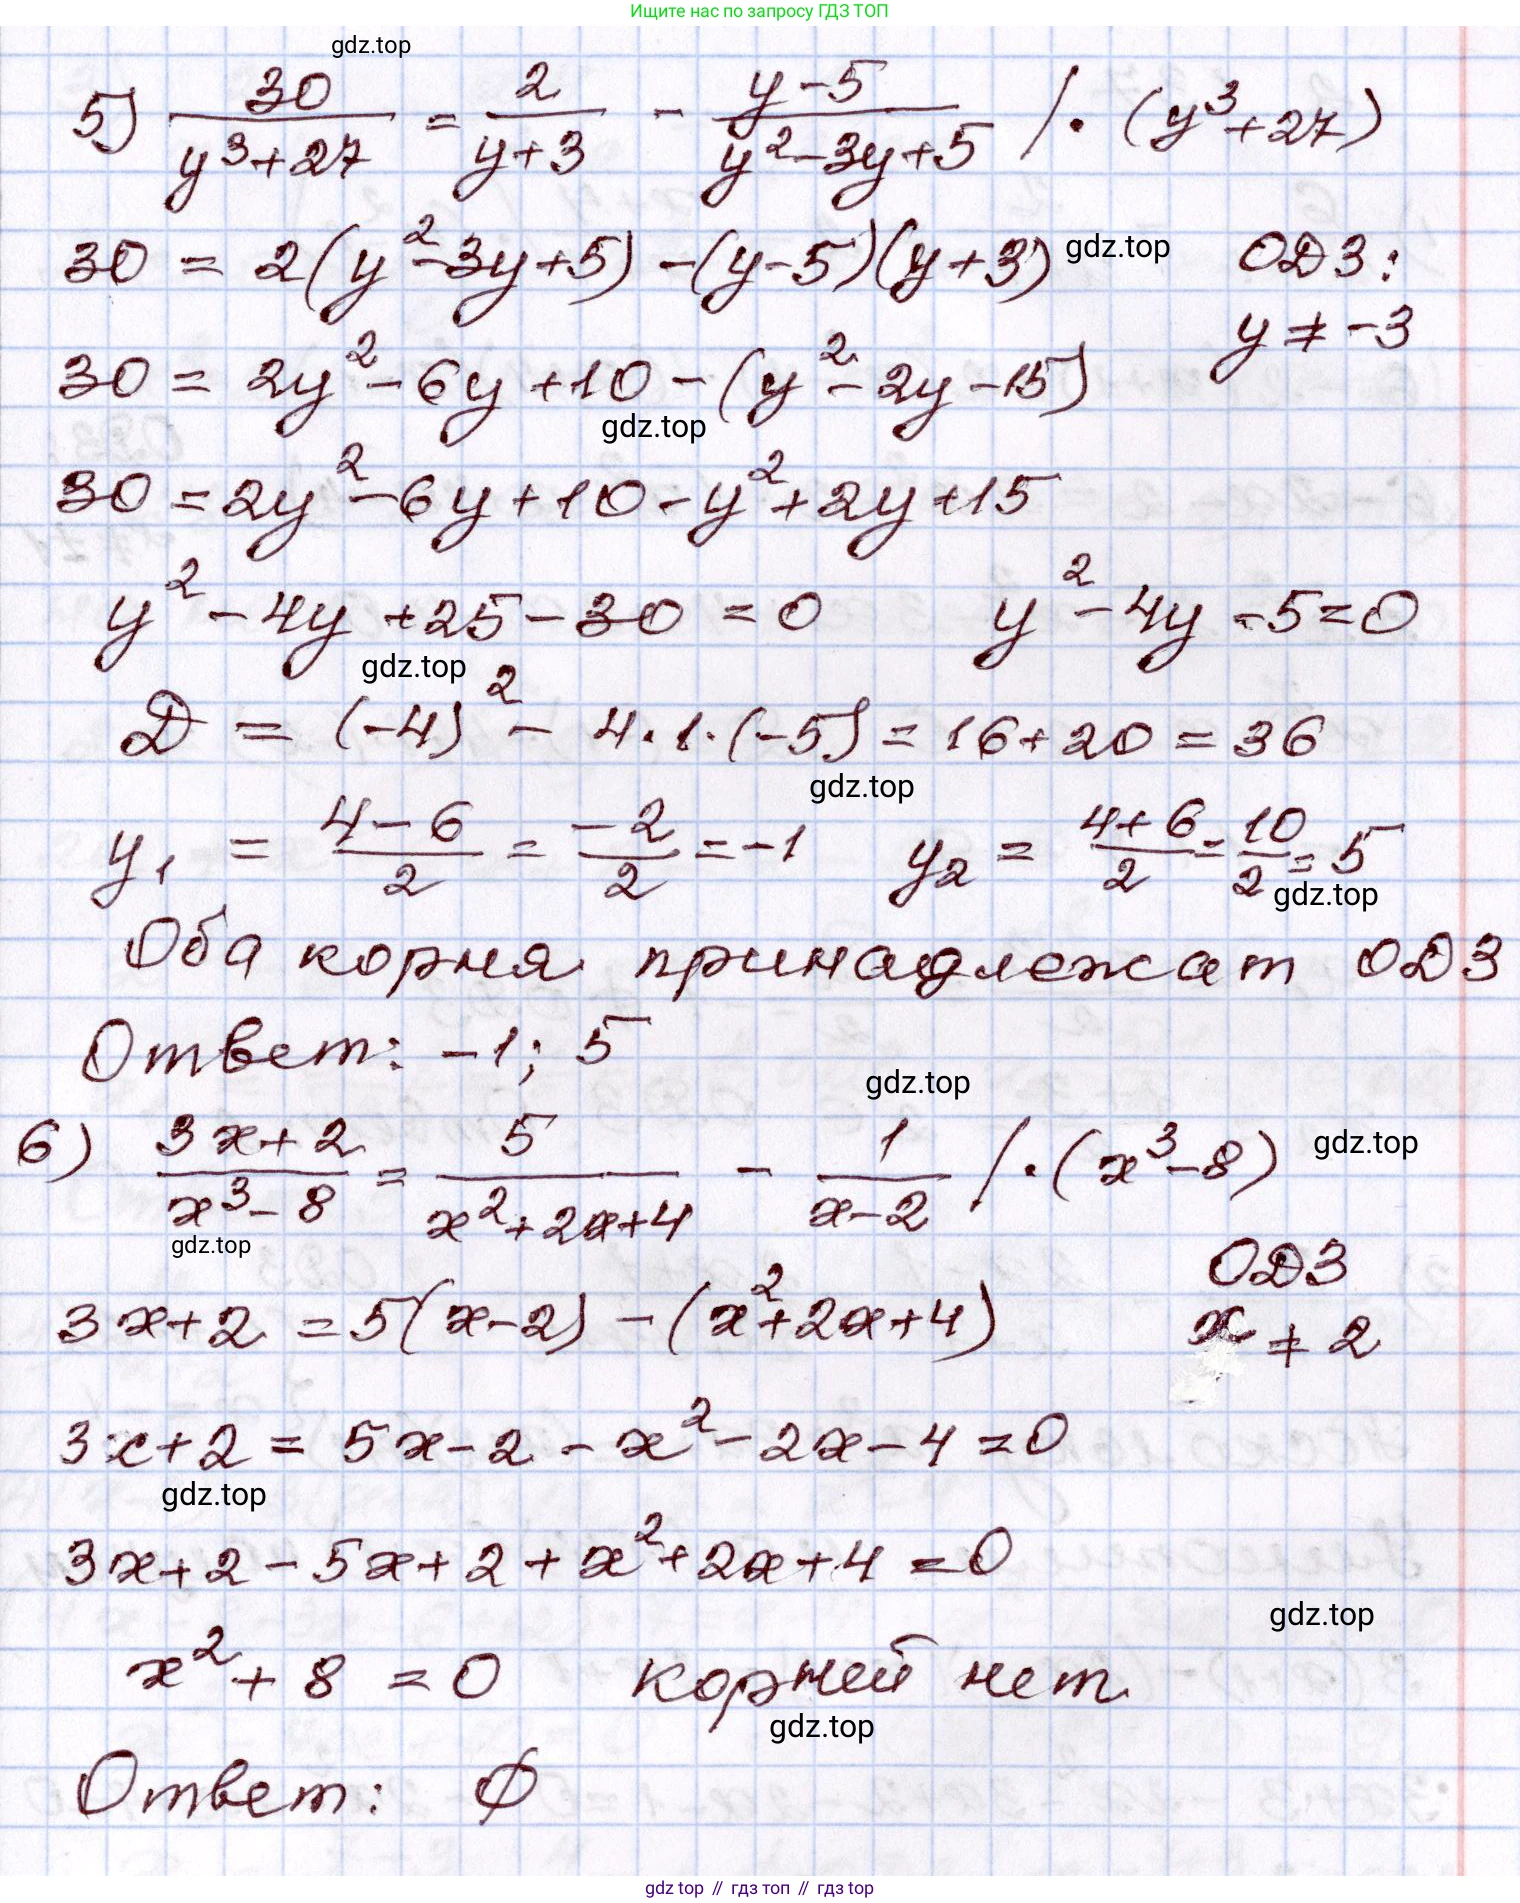 Ищите нас по запросу ГДЗ ТОП
gdz.top
5) 30/(y³+27) = 2/(y+3) - (y-5)/(y²-3y+5) /·(y³+27)
30 = 2(y²-3y+5) -(y-5)(y+3) gdz.top ОДЗ:
y ≠ -3
30 = 2y²-6y+10-(y²-2y-15)
gdz.top
30 = 2y²-6y+10-y²+2y+15
y²-4y+25-30=0 y²-4y-5=0
gdz.top
Д = (-4)²-4·1·(-5)=16+20=36
gdz.top
y₁ = (4-6)/2 = -2/2 = -1 y₂ = (4+6)/2 = 10/2 = 5
gdz.top
Оба корня принадлежат ОДЗ
Ответ: -1; 5
gdz.top
6) (3x+2)/(x³-8) = 5/(x²+2x+4) - 1/(x-2) /·(x³-8) gdz.top
gdz.top
ОДЗ
3x+2 = 5(x-2) -(x²+2x+4) x ≠ 2
3x+2 = 5x-2-x²-2x-4=0
gdz.top
3x+2-5x+2+x²+2x+4=0
gdz.top
x²+8=0 корней нет
gdz.top
Ответ: ∅
gdz top // гдз топ // гдз top